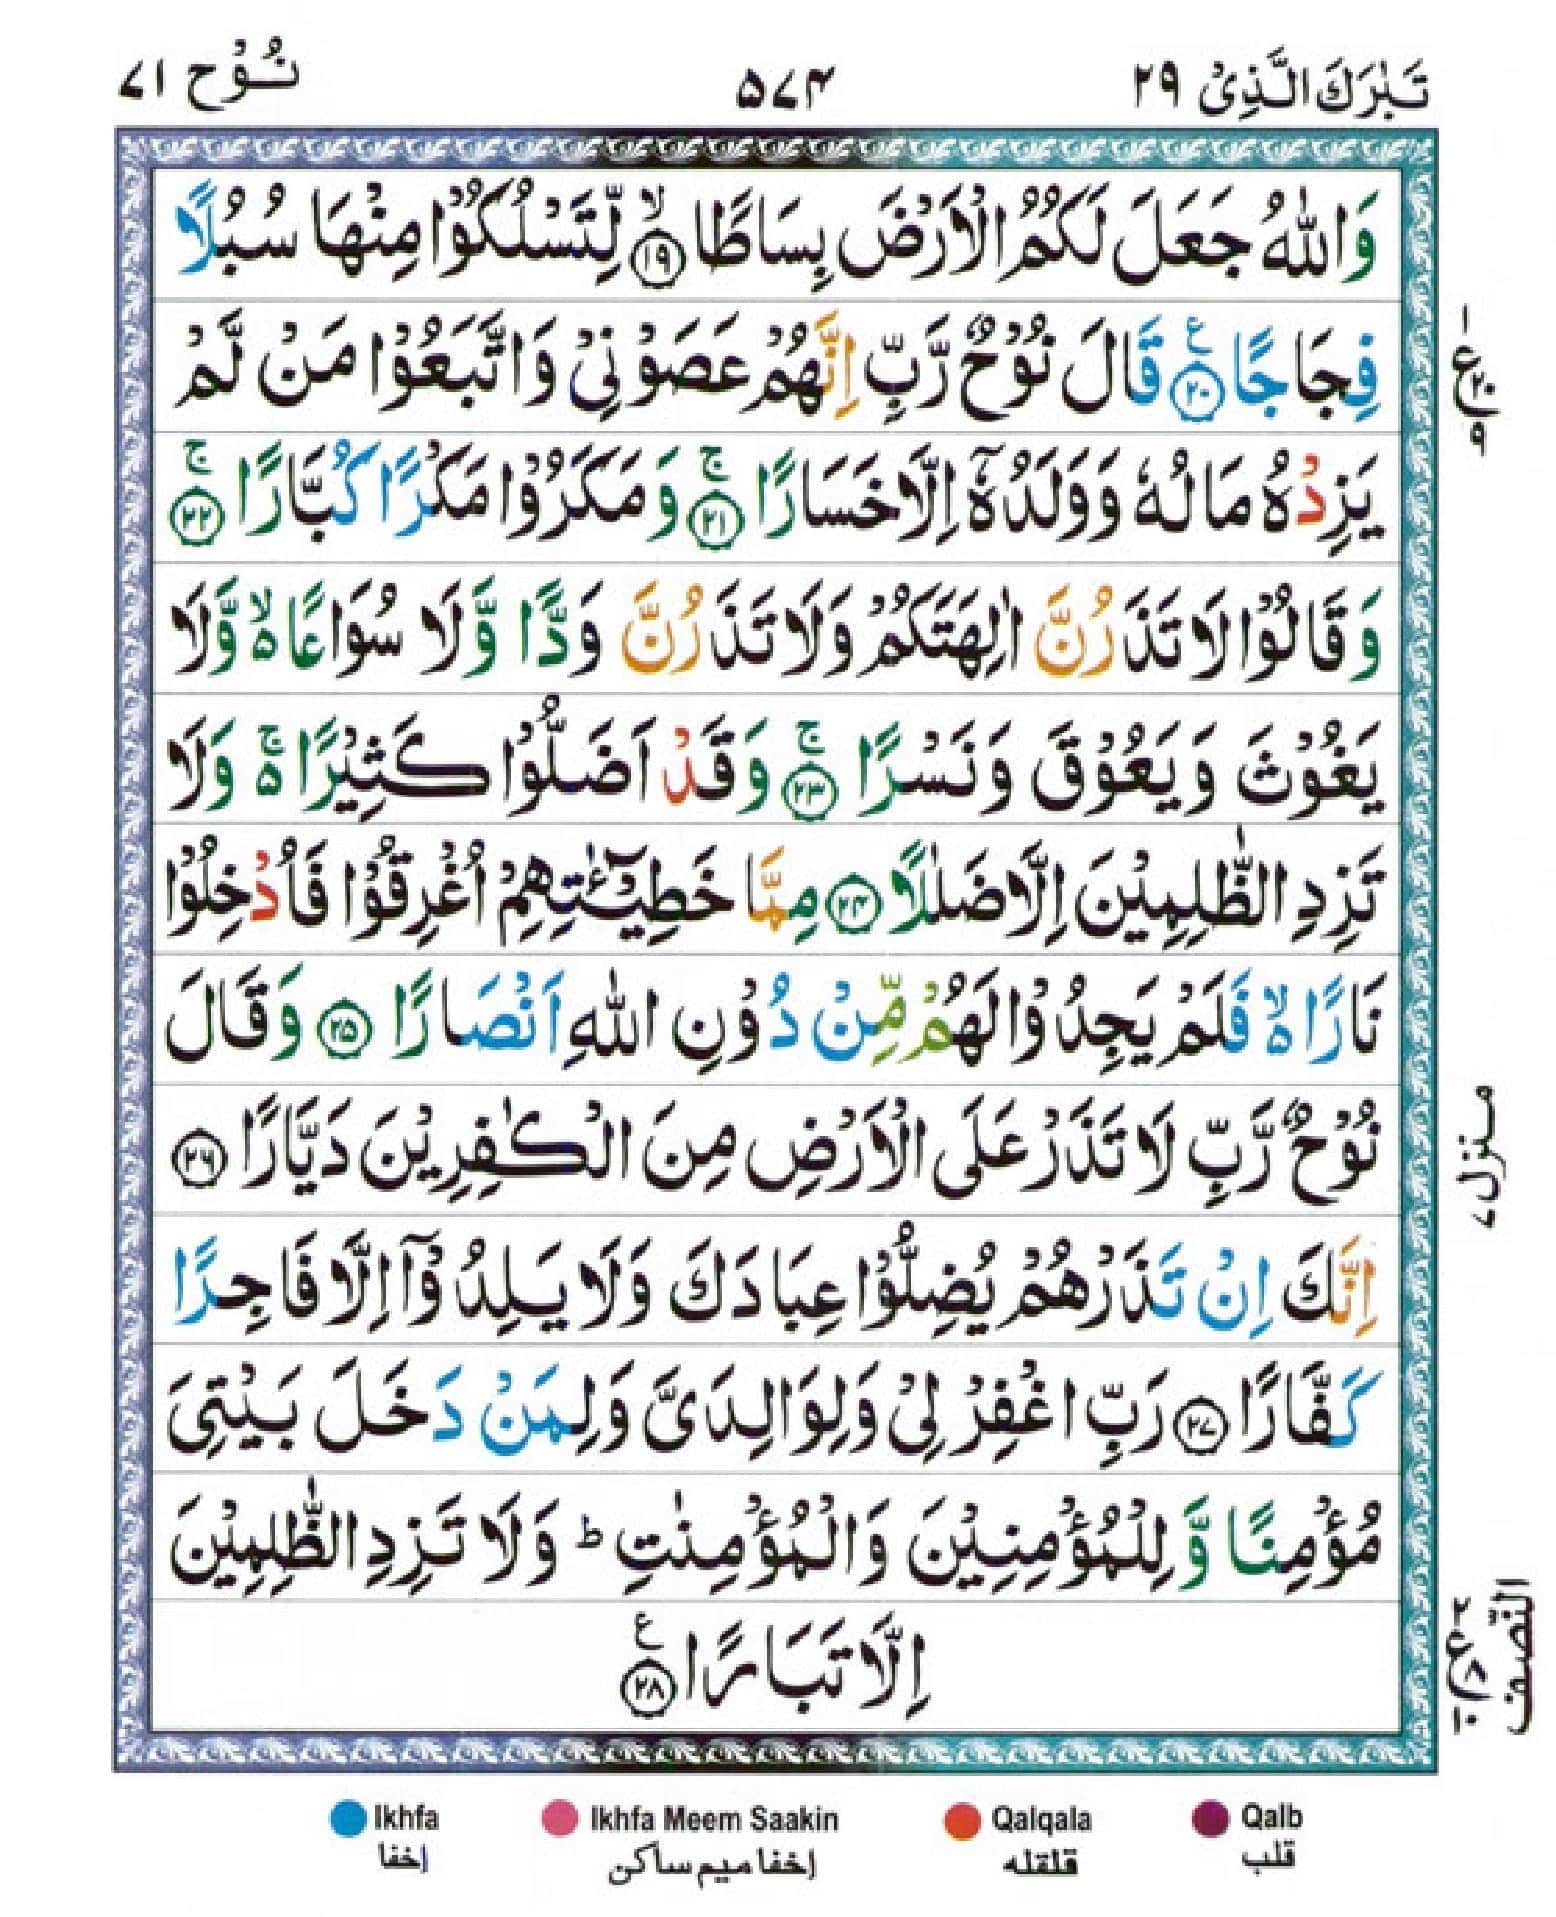 تَبٰرَكَ الَّذِىْ ٢٩
٥٧٤
نُوْح ٧١
وَاللّٰهُ جَعَلَ لَكُمُ الْاَرْضَ بِسَاطًا ۙ‏﴿١٩﴾ لِّتَسْلُكُوْا مِنْهَا سُبُلًا
فِجَاجًا ﴿٢٠﴾ ع قَالَ نُوْحٌ رَّبِّ اِنَّهُمْ عَصَوْنِىْ وَاتَّبَعُوْا مَنْ لَّمْ
يَزِدْهُ مَالُهٗ وَوَلَدُهٗۤ اِلَّا خَسَارًا ۚ‏﴿٢١﴾ وَمَكَرُوْا مَكْرًا كُبَّارًا ۚ‏﴿٢٢﴾
وَقَالُوْا لَا تَذَرُنَّ اٰلِهَتَكُمْ وَلَا تَذَرُنَّ وَدًّا وَّلَا سُوَاعًا ۙ۬ وَّلَا
يَغُوْثَ وَيَعُوْقَ وَنَسْرًا ۚ‏﴿٢٣﴾ وَقَدْ اَضَلُّوْا كَثِيْرًا ۚ۬ وَلَا
تَزِدِ الظّٰلِمِيْنَ اِلَّا ضَلٰلًا ﴿٢٤﴾ مِمَّا خَطِيْٓـٰٔتِهِمْ اُغْرِقُوْا فَاُدْخِلُوْا
نَارًا ۙ۬ فَلَمْ يَجِدُوْا لَهُمْ مِّنْ دُوْنِ اللّٰهِ اَنْصَارًا ﴿٢٥﴾ وَقَالَ
نُوْحٌ رَّبِّ لَا تَذَرْ عَلَى الْاَرْضِ مِنَ الْكٰفِرِيْنَ دَيَّارًا ﴿٢٦﴾
اِنَّكَ اِنْ تَذَرْهُمْ يُضِلُّوْا عِبَادَكَ وَلَا يَلِدُوْۤا اِلَّا فَاجِرًا
كَفَّارًا ﴿٢٧﴾ رَبِّ اغْفِرْ لِىْ وَلِوَالِدَىَّ وَلِمَنْ دَخَلَ بَيْتِىَ
مُؤْمِنًا وَّ لِلْمُؤْمِنِيْنَ وَالْمُؤْمِنٰتِ ؕ وَلَا تَزِدِ الظّٰلِمِيْنَ
اِلَّا تَبَارًا ﴿٢٨﴾ ع
ع ٢٠ ٩
منزل ٧
النّصف
Ikhfa
اخفا
Ikhfa Meem Saakin
اخفا میم ساکن
Qalqala
قلقله
Qalb
قلب